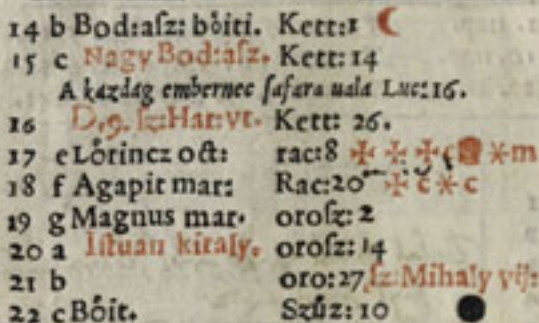 14 b Bod:asz: bőiti. Kett:1 ☾
15 c Nagy Bod:asz. Kett:14
A kazdag embernec safara uala Luc:16.
16 D.9. sz:Har:vt. Kett: 26.
17 e Lőrincz oct: rac:8
18 f Agapit mar: Rac:20
19 g Magnus mar. orosz: 2
20 a Istuan kiraly. orosz: 14
21 b oro:27 sz:Mihaly vij:
22 c Bőit. Szűz: 10 ●